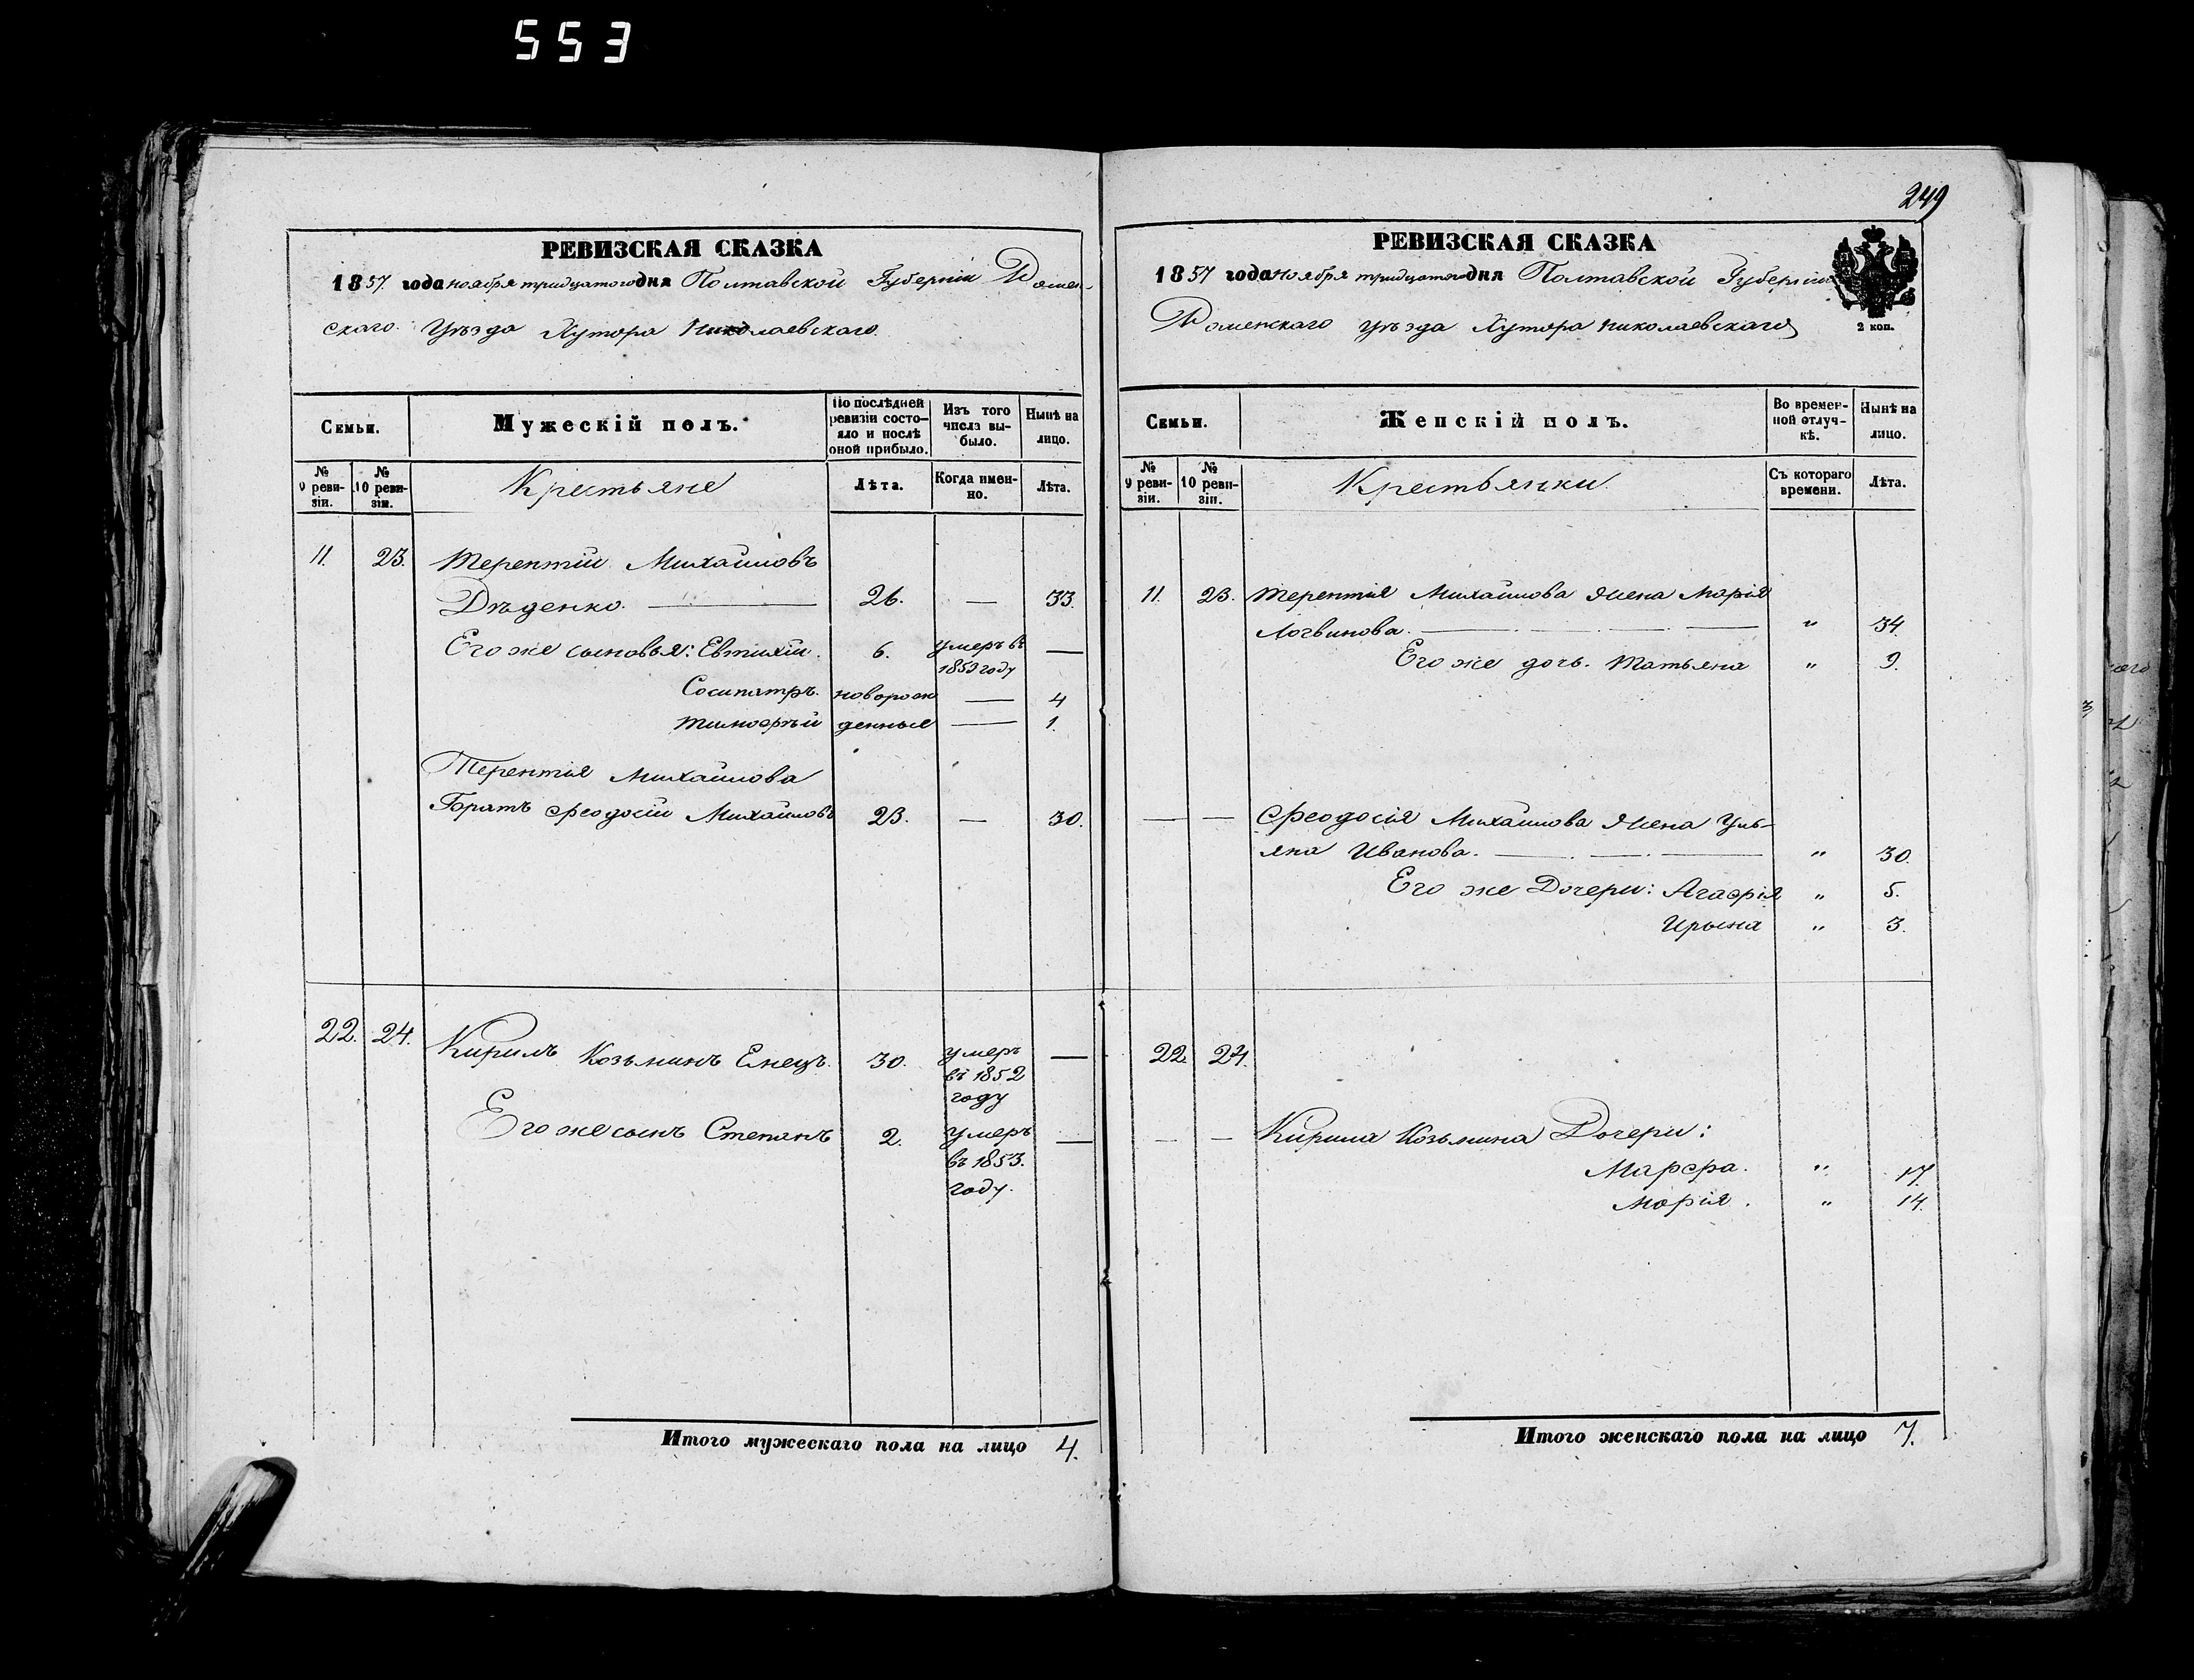 553
249
РЕВИЗСКАЯ СКАЗКА
1857 года ноября тридцатого дня Полтавской Губерніи Ромен-
скаго Уѣзда Хутора Николаевскаго.
Семьи.
Мужескій полъ.
По послѣдней ревизіи состо-
яло и послѣ оной прибыло.
Изъ того числа вы-
было.
Нынѣ на лицо.
№ 9 реви-
зіи.
№ 10 реви-
зіи.
Крестьяне
Лѣта.
Когда имен-
но.
Лѣта.
11. 23. Терентій Михайловъ
Дѣденко. — 26. — 33.
Его же сыновья: Евтихій. 6. умеръ въ —
1853 году
Сосипатръ. новорож — 4
Тимофѣй денные — 1.
Терентія Михайлова
Братъ Феодосій Михайловъ 23. — 30.
22. 24. Кирилъ Козьминъ Енецъ. 30. умеръ —
въ 1852
году
Его же сынъ Степанъ 2. умеръ —
въ 1853.
году.
Итого мужескаго пола на лицо 4.
РЕВИЗСКАЯ СКАЗКА
1857 года ноября тридцатого дня Полтавской Губерніи
Роменскаго уѣзда Хутора Николаевскаго
2 коп.
Семьи.
Женскій полъ.
Во времен-
ной отлуч-
кѣ.
Нынѣ на лицо.
№ 9 реви-
зіи.
№ 10 реви-
зіи.
Крестьянки.
Съ котораго времени.
Лѣта.
11. 23. Терентія Михайлова жена Марія
Логвинова. — " 34.
Его же дочь. Татьяна " 9.
— — Феодосія Михайлова жена Уль-
яна Иванова. — " 30.
Его же Дочери: Агафія " 5.
Ирына " 3.
22. 24.
— — Кирила Козьмина Дочери:
Марфа. " 17.
Марія. " 14.
Итого женскаго пола на лицо 7.